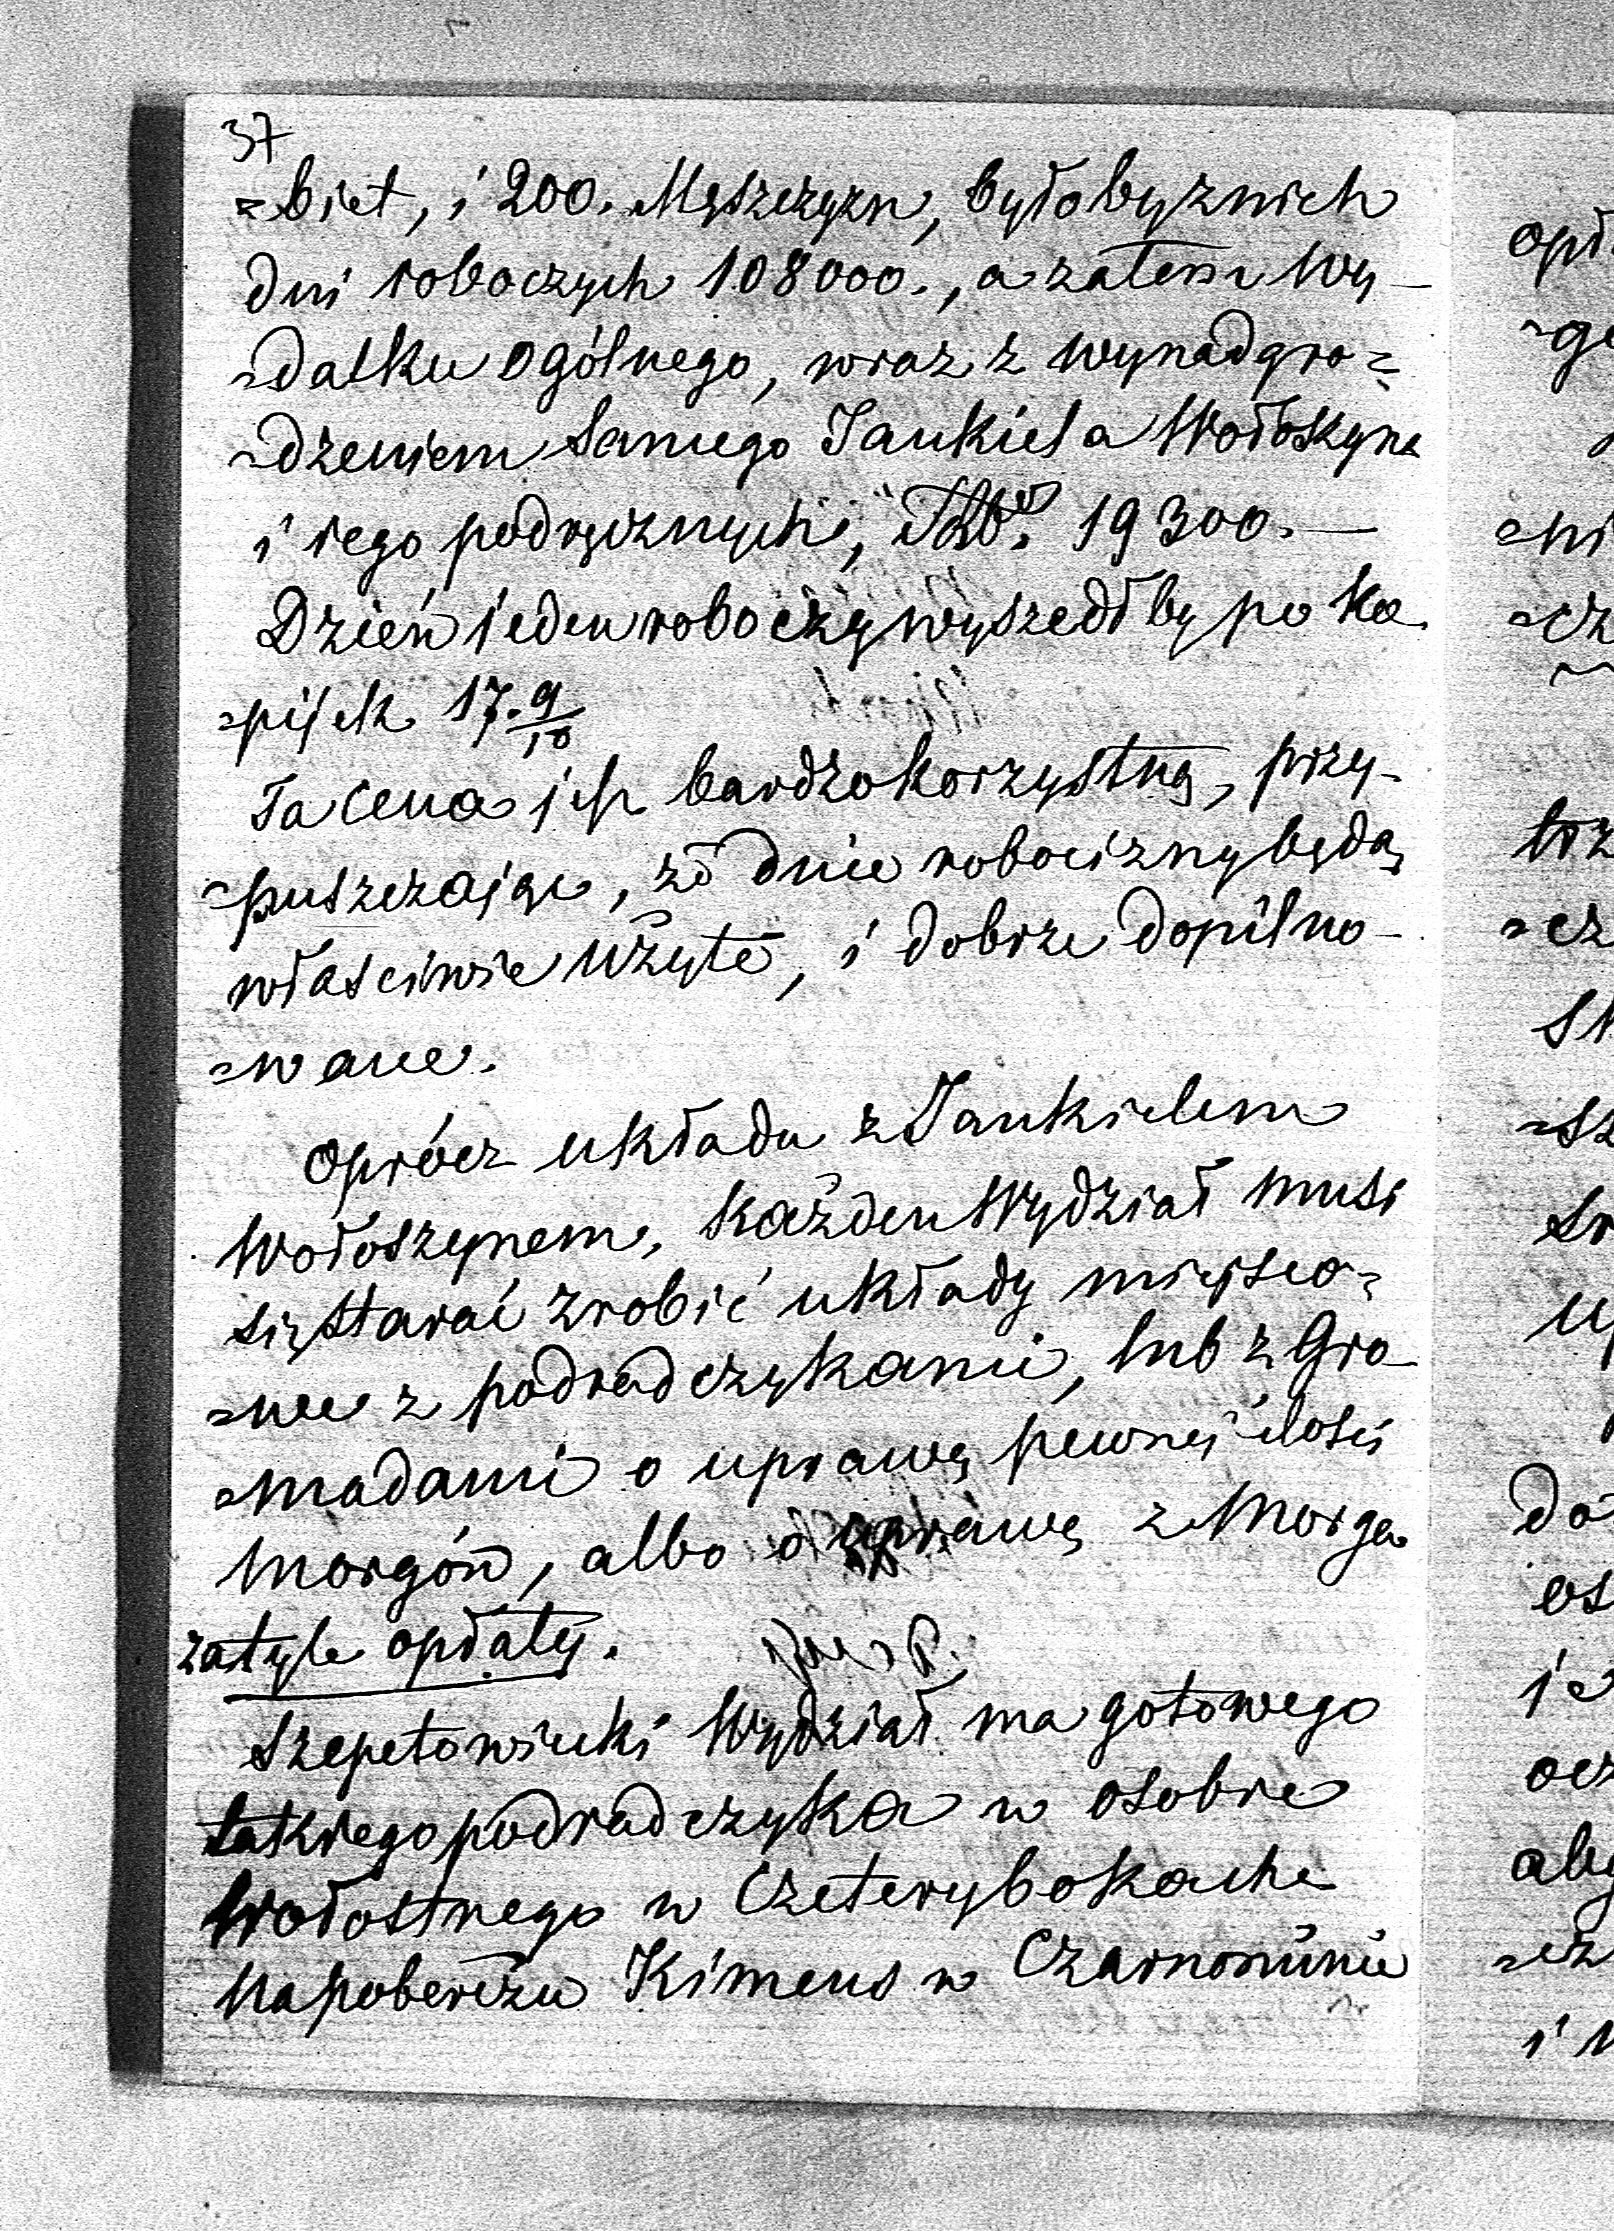 37
=biet, i 200. Męszczyzn, byłoby z nich
dni roboczych 108000., a zatem Wy-
=datku ogólnego, wraz z wynadgro=
=dzeniem Samego Jankiela Wołoszyna
i iego podręcznych, Rbr. 19300.—
Dzień ieden roboczy wyszedłby po ko
=piiek 17.9/10
Ta cena iest bardzo korzystną, przy-
=puszczaiąc, że dnie robocizny będą
właściwie użyte, i dobrze dopilno-
=wane.
Oprócz układu z Jankielem
Wołoszynem, każden Wydział musi
się starać zrobić układy mieysco=
=we z podradczykami, lub z Gro-
=madami o uprawę pewnej ilości
Morgów, albo o uprawę z Morga
za tyle opłaty.
Szepetowiecki Wydział ma gotowego
takiego podradczyka w osobie
Wołostnego w Czeterybokach
Na pobereżu Kimens w Czarnominie
opł
=ge
=ni
=cz
trz
=cz
=sz
do
i
ocz
aby
i